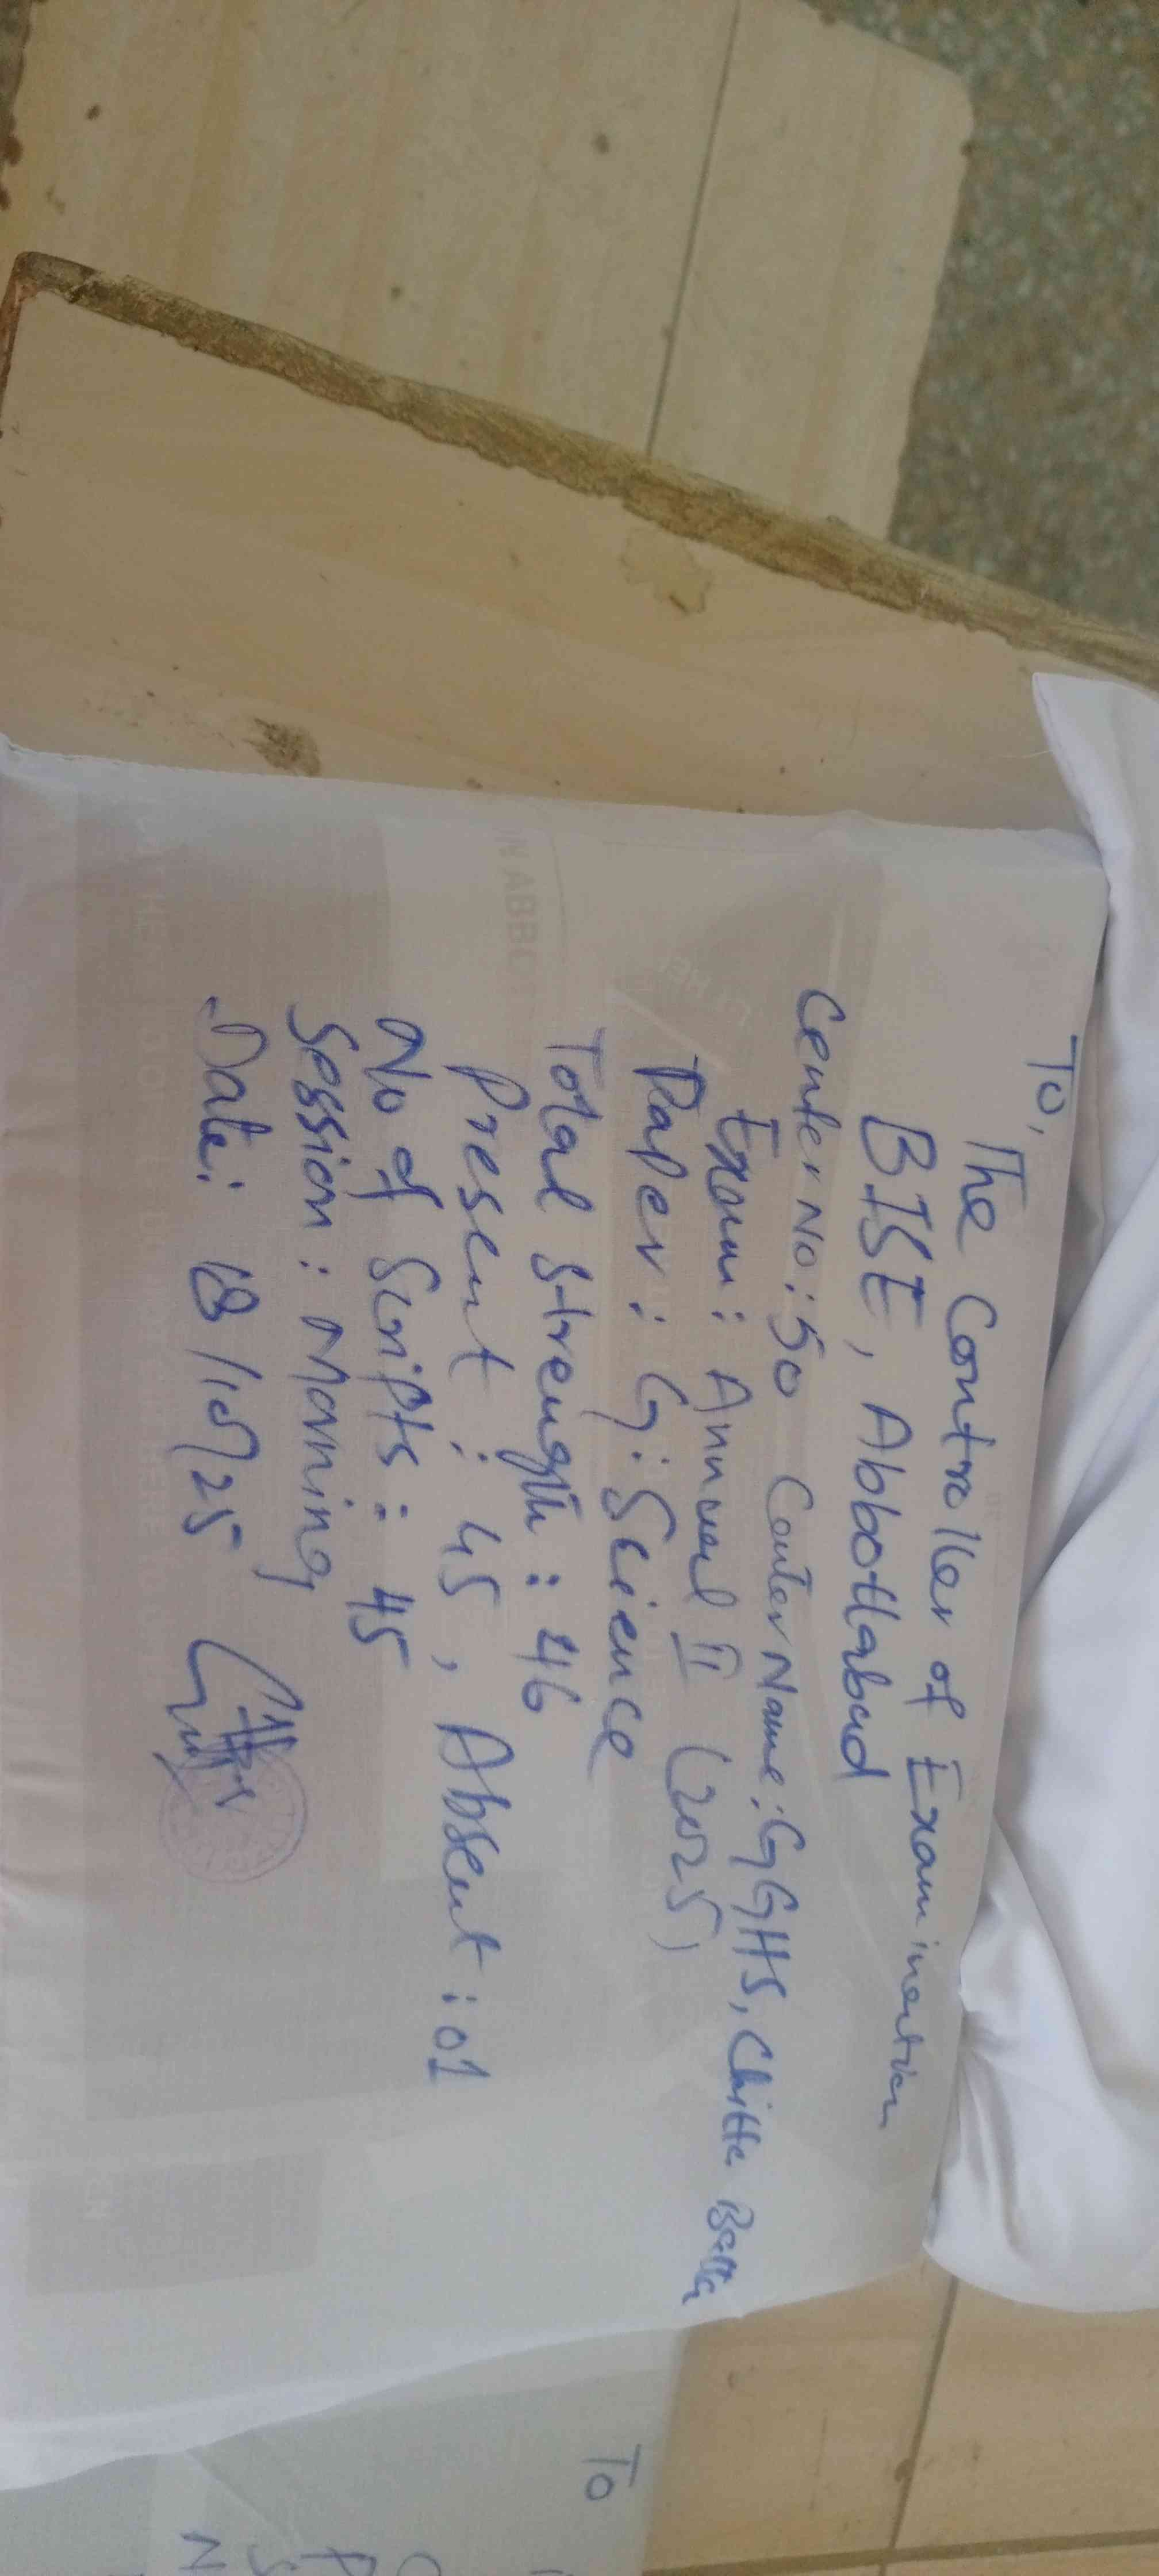 To,
The Controller of Examination
BISE, Abbottabad
Center No: 50 Center Name: GGHS, Chitta Batta
Exam: Annual II (2025)
Paper: G. Science
Total Strength: 46
Present: 45, Absent: 01
No of Scripts: 45
Session: Morning
Date: /10/25
To